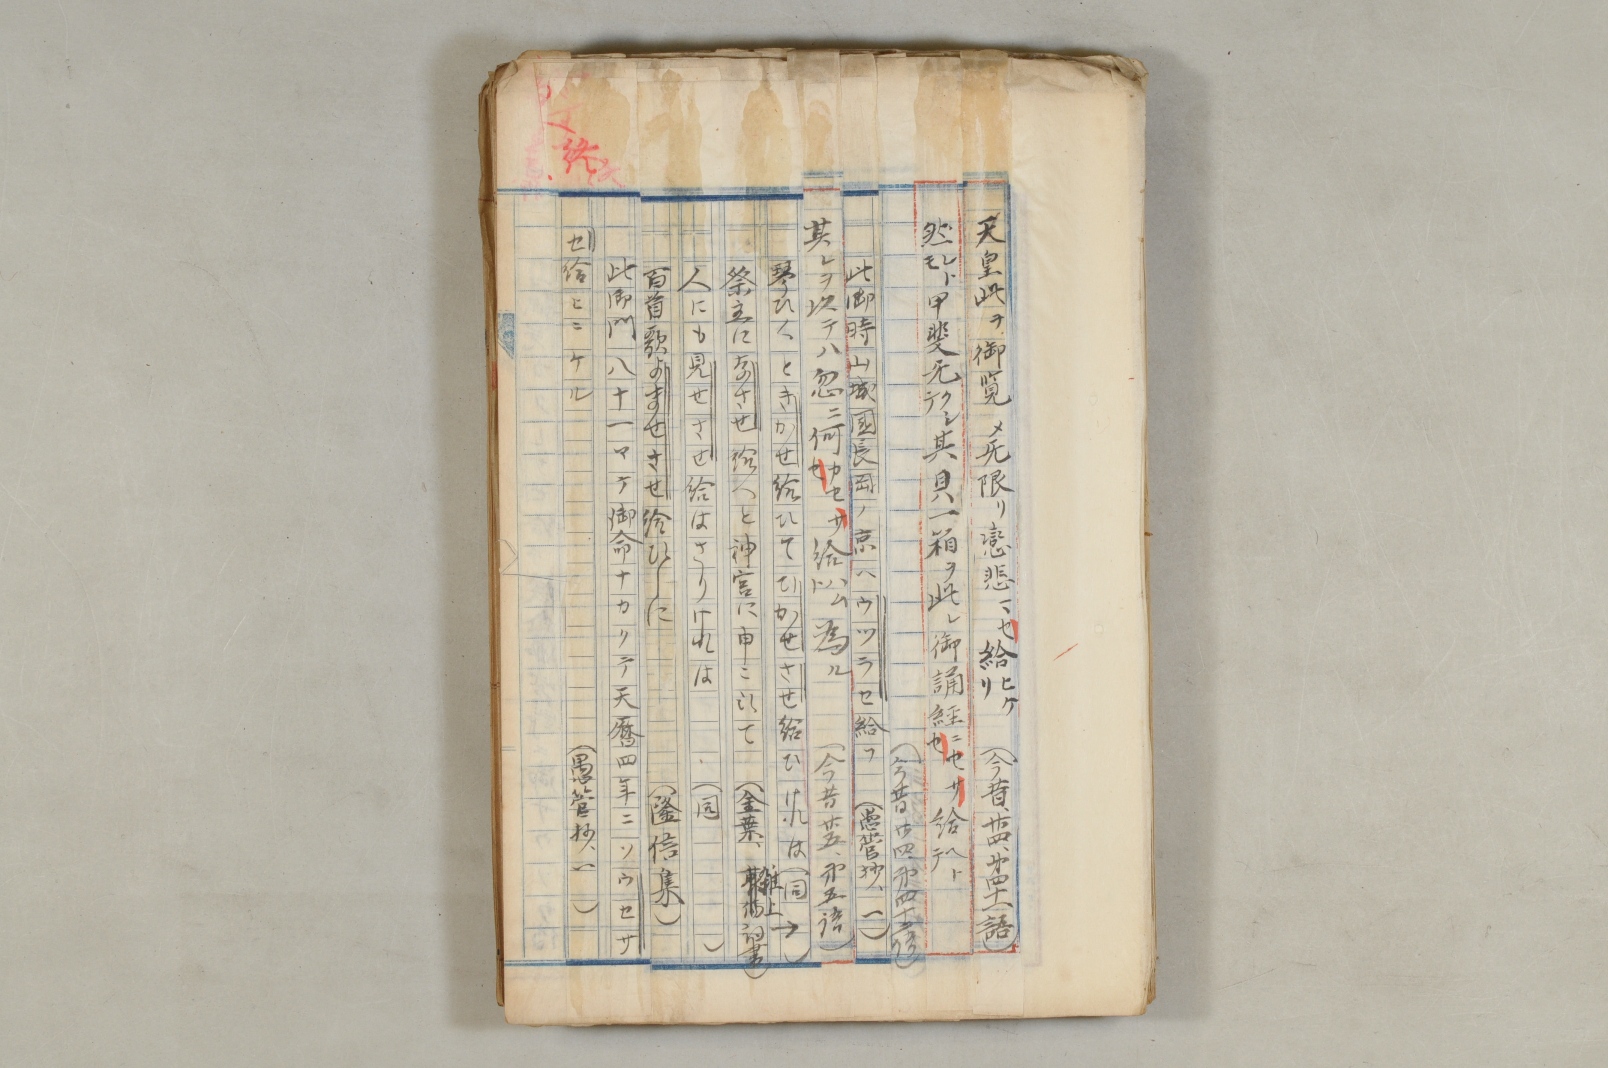 天皇此ヲ御覧メ无限リ恋悲マセ給ヒケリ
(今昔、廿四、第四十一語)
然レトモ甲斐无クシテ其具一箱ヲ此レ御誦経ニセサセ給ヘトテ
(今昔廿四、第四十
此御時山城国長岡ノ京ヘウツラセ給フ (愚管抄、一)
其レヲ
テハ忽ニ何カセサセ給ハム為ル (今昔廿五、第五語)
琴ひくときかせ給ひてひかせさせ給ひけれは (同 )
祭主になさせ給へと神宮に申こひて (金葉、雑上
人にも見せさせ給はさりけれは (同 )
百首歌よませさせ給ひしに (隆信集)
此御門八十一マテ御命ナカクテ天暦四年ニソウセサ
セ給ヒニケル (愚管抄、一 )